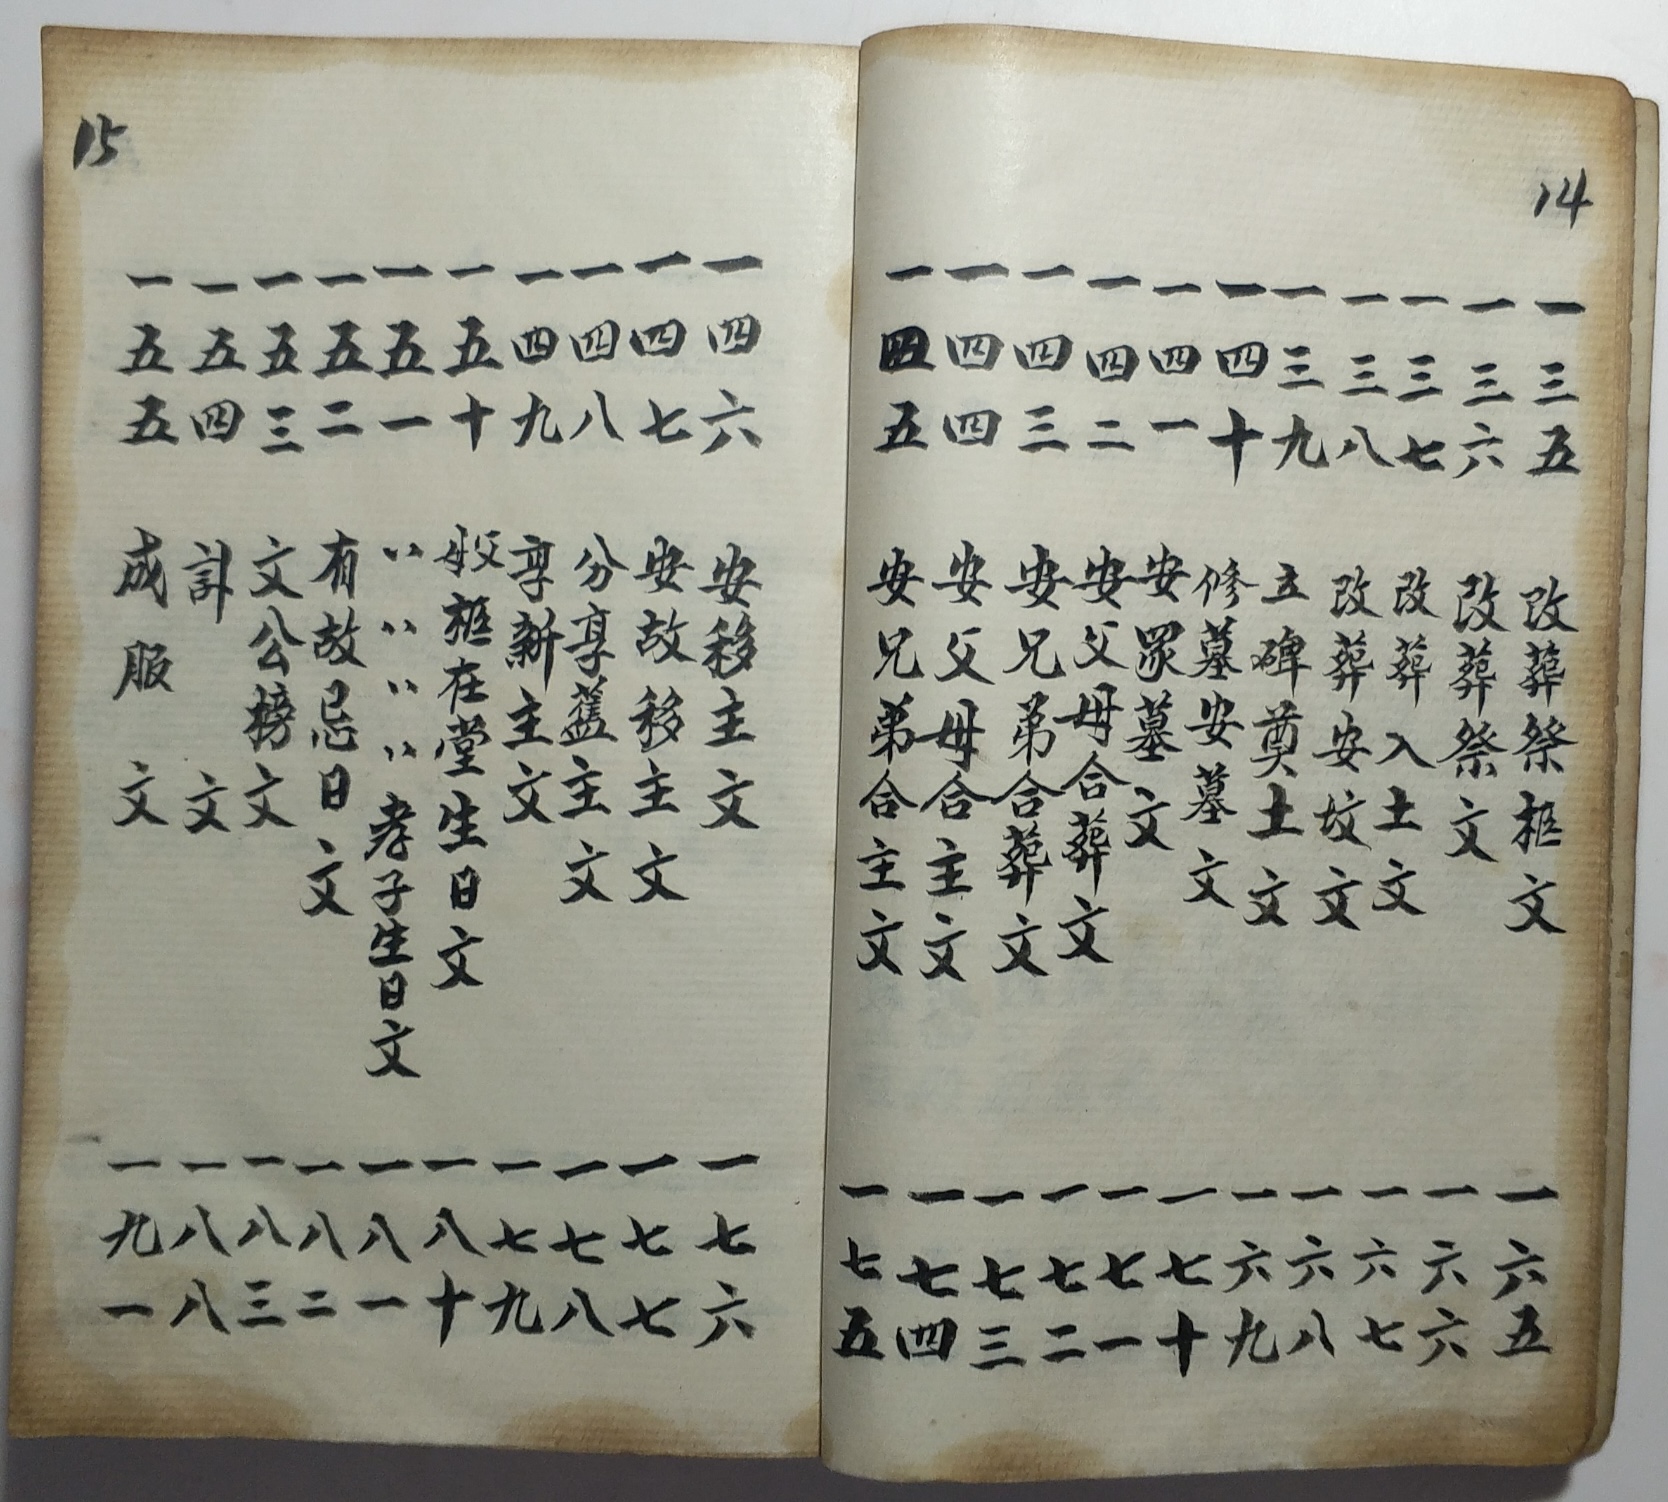 14
一三五 改葬祭柩文 一六五
一三六 改葬祭文 一六六
一三七 改葬入土文 一六七
一三八 改葬安坟文 一六八
一三九 立碑奠土文 一六九
一四十 修墓安墓文 一七十
一四一 安眾墓文 一七一
一四二 安父母合葬文 一七二
一四三 安兄弟合葬文 一七三
一四四 安父母合主文 一七四
一四五 安兄弟合主文 一七五
15
一四六 安移主文 一七六
一四七 安故移主文 一七七
一四八 分享舊主文 一七八
一四九 享新主文 一七九
一五十 父母柩在堂生日文 一八十
一五一 〃〃〃〃孝子生日文 一八一
一五二 有故忌日文 一八二
一五三 文公榜文 一八三
一五四 訃文 一八八
一五五 成服文 一九一